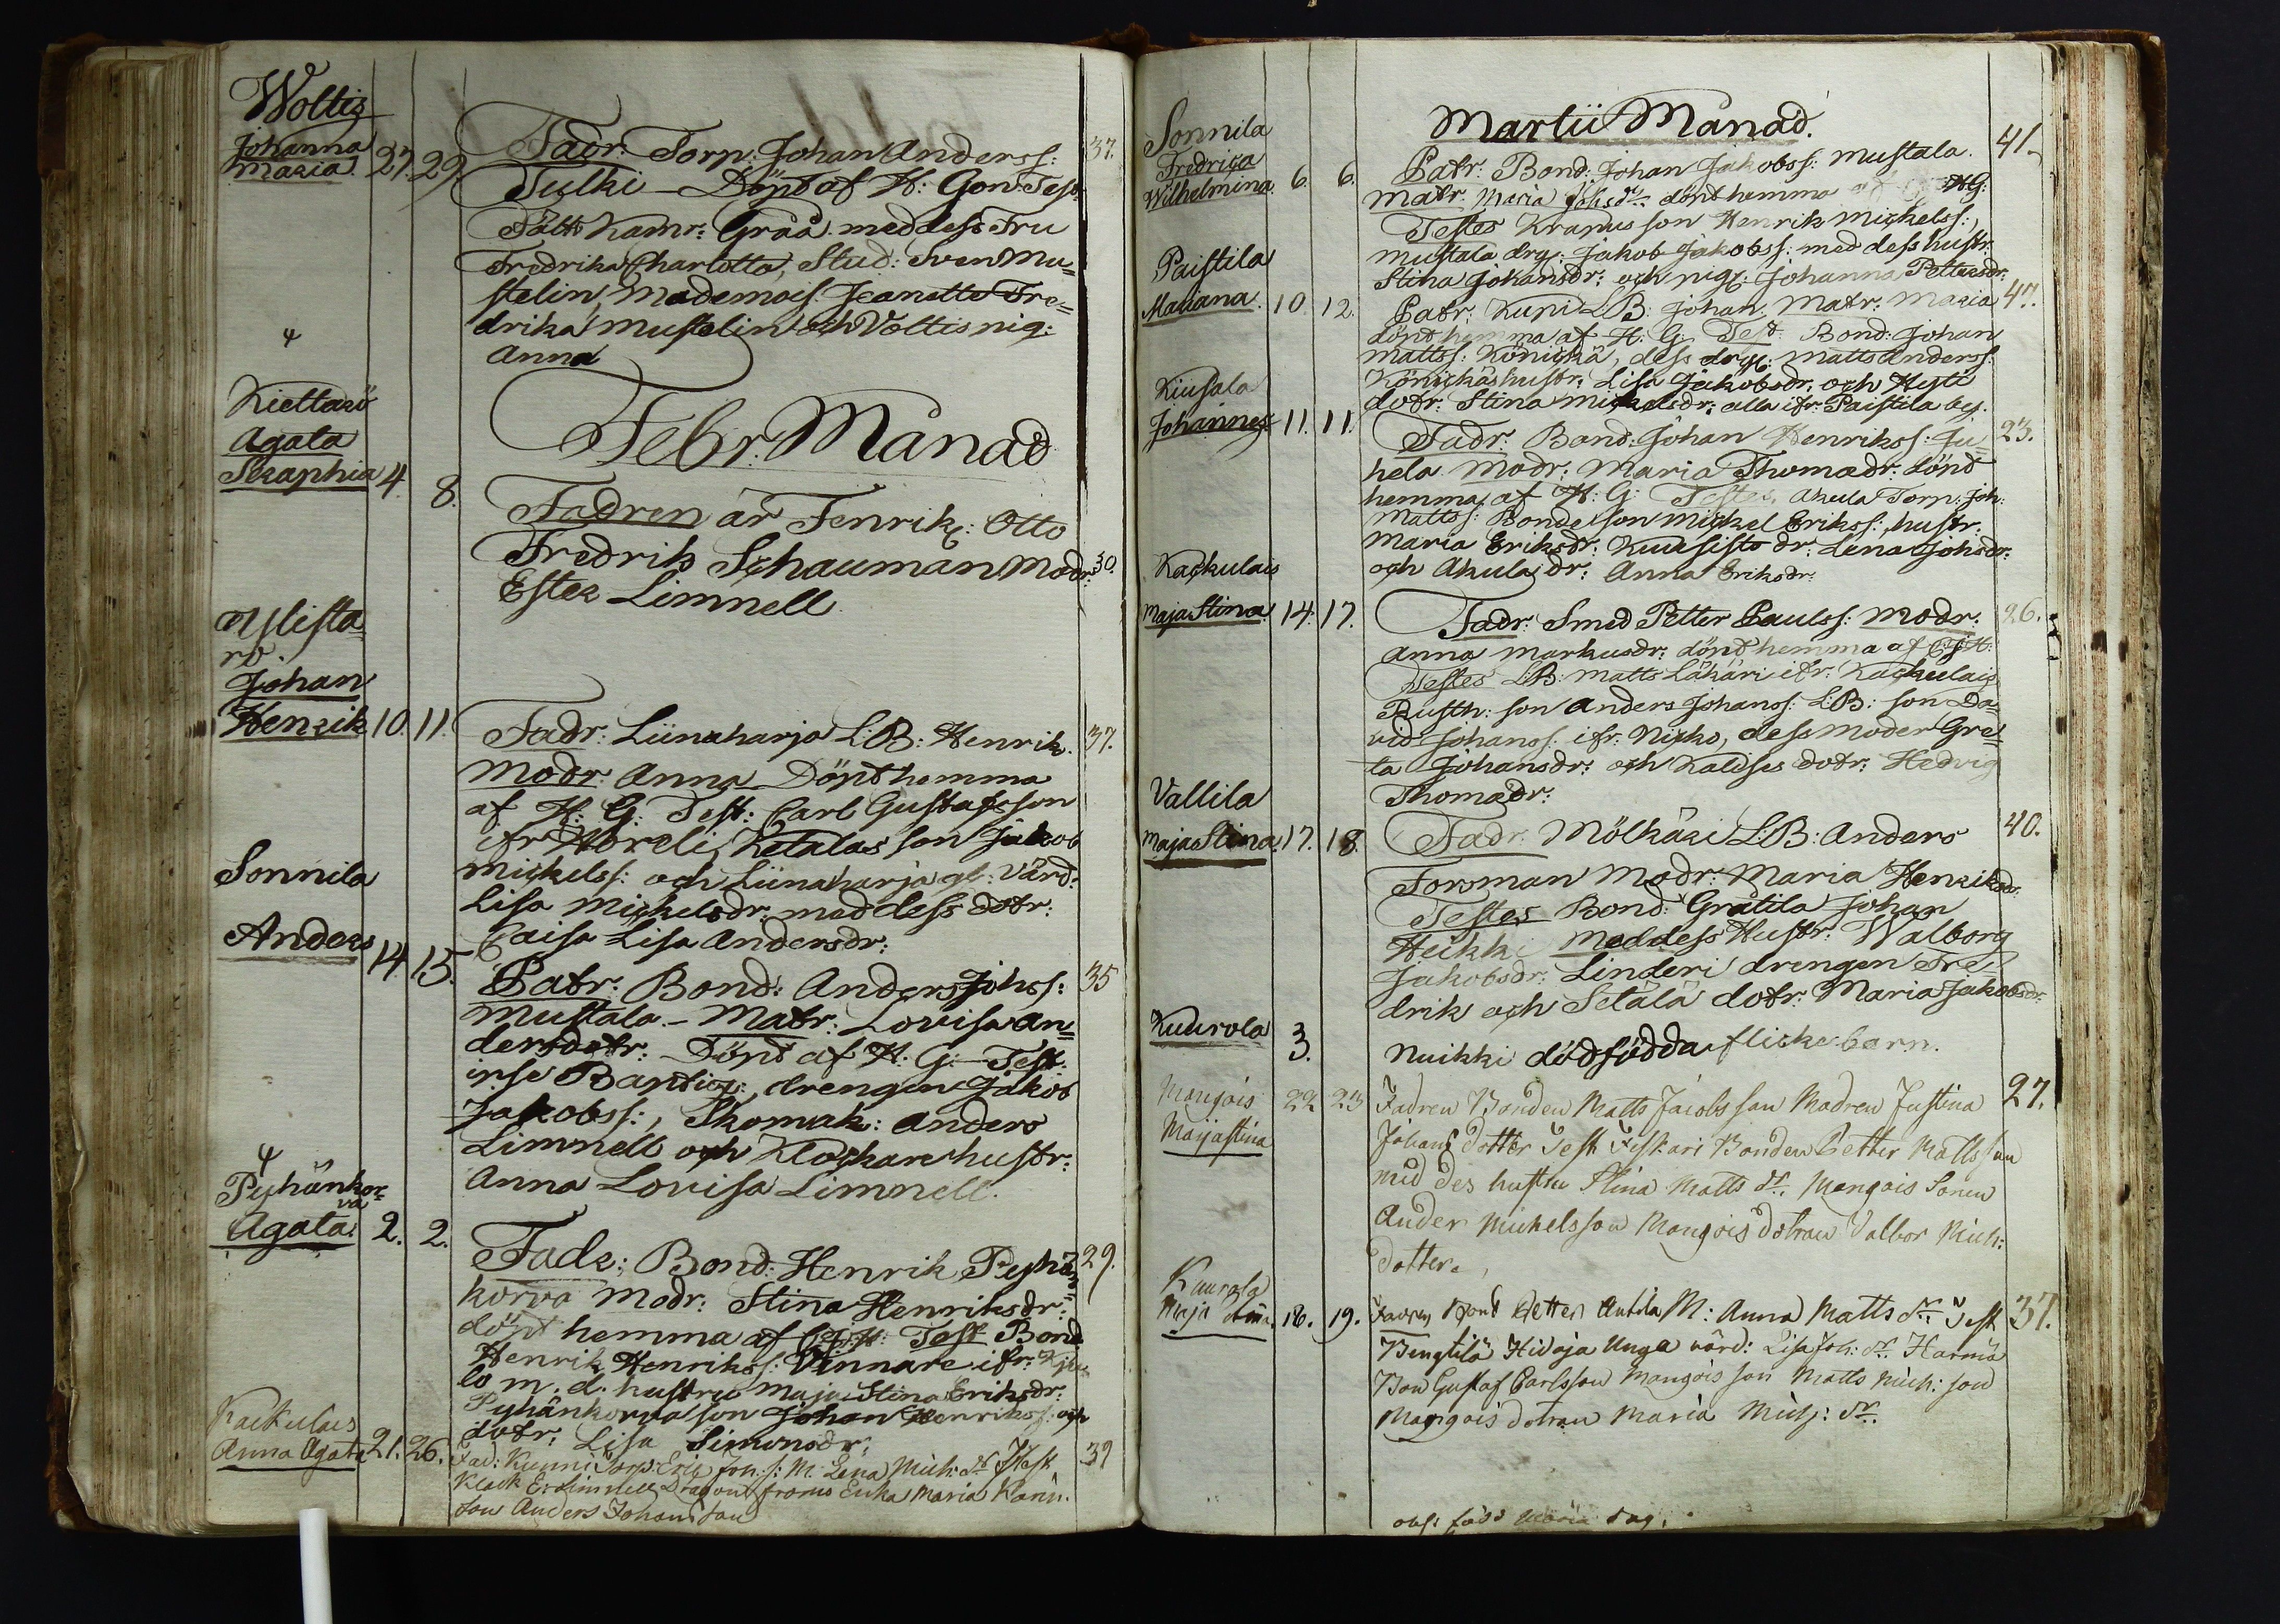 Woltis
Johanna
Maria 27. 29. Fadr: Torp: Johan Anderss: 37.
Tulki - Döpt af H: Gon Test:
Fält Kamr: Grää med dess Fru
Fredrika Charlotta, Stud: Sven Mu=
stelin, Mademois: Jeanette Fre=
drika Mustelin och Voltis pig:
Anna
Febr. Månad
Kiettarö
Agata
Seraphia 4. 8. Fadren är Fenrik: Otto
Fredrik Schauman Modr: 30.
Ester Limnell
Ylista=
ro.
Johan
Henrik 10. 11. Fadr: Liinaharja L:B: Henrik. 37.
Modr: Anna Döpt hemma
af H: G: Test: Carl Gustafsson
ifr Horeli, Ketalas son Jakob
Mickelss: och Liinaharja gl: Värd:
Lisa Mickelsdr: med dess dotr:
Caisa Lisa Andersdr:
Sonnila
Anders 14. 15. Patr: Bond: Anders Johss: 35
Mustala - Matr: Lovisa An=
dersdotr: Döpt af H: G: Test:
ipse Baptiz: drengen Jakob
Jakobss:, Skomak: Anders
Limnell och Klockare hustr:
Anna Lovisa Limnell.
Pyhänkor=
va
Agata. 2. 2. Fadr: Bond: Henrik Pyhän= 29.
korva Modr: Stina Henriksdr:
döpt hemma af Test Bond
Henrik Henrikss: Vinnare ifr:
lo m. d. hustru Maja Stina Eriksdr:
Pyhänkorva son Johan Henrikss: och
dotr: Lisa Simonsdr:
Kackulais
Anna Agata 21. 26. Fad: Kunni Torp: Eric Joh: s: M: Lena Mich: dr Test 39
Klock E: Limnell Dragon from Erika Maria Karin.
son Anders Johansson
Martii Månad.
Sonnila
Fredrica
Wilhelmina. 6. 6. Patr: Bond: Johan Jakobss: Mustala. 41.
Matr: Maria Johsdr: döpt hemma af HG:
Testes Krapus son Henrik Mickelss:,
Mustala drg: Jakob Jakobss: med dess hustr:
Stina Johansdr: och pig: Johanna Pettersdr:
Paistila
Mariana. 10. 12. Patr: Kuni LB: Johan, Matr: Maria 47.
döpt hemma af H. G. Test: Bond: Johan
Mattss: Könickä, dess drg: Matts Anderss:
Könickäs hustr: Lisa Jakobsdr: och Hyti
dotr: Stina Mickelsdr: alla ifr: Paistila by.
Kiusala
Johannes 11. 11. Fadr: Bond: Johan Henrikss: Ju= 23.
hela Modr: Maria Thomadr: döpt
hemma af H: G: Testes, Akula Torp: Joh:
Mattss: Bonde son Mickel Erikss:, hustr:
Maria Eriksdr: Kuusisto dr: Lena Johsdr:
och Akula dr: Anna Eriksdr:
Kackulais
Maja Stina. 14. 17. Fadr: Smed Petter Paulss: Modr: 26.
Anna Markusdr: döpt hemma af
Testes L:B: Matts Läkäri ifr: Kackulais
Rusth: son Anders Johanss: L:B: son Da=
vid Johanss: ifr: Nicko, dess Moder Gre=
ta Johansdr: och Kaldses dotr: Hedvig
Thomadr:
Vallila
Maja Stina. 17. 18. Fadr: Mölkäri L:B: Anders 40.
Forsman Modr: Maria Henriksdr:
Testes Bond: Grätila Johan
Heikki med dess Hustr: Walborg
Jakobsdr: Linderi drengen Fre=
drik och Setälä dotr: Maria Jakobsdr:
Kuurola 3. Nuikki dödfödda flicke barn.
Mangois
Maijastina 22 23 Fadren Bonden Matts Jacobsson Madren Justina 27.
Johans dotter Test Fiskari Bonden Petter Mattsson
med des hustru Stina Matts dr. Mangois Sonen
Ander Michelsson Mangois dotran Valbor Mich:
dotter.
Kaurasa
Maja Stina. 18. 19. Fadren Bond Petter Antila M: Anna Matts dr: Test 37.
Bengtilä Hidoja Unga värd: Lisa Joh: dr. Harmä
Bon Gustaf Carlsson Mangois son Matts Mich: son
Mangois dotran Maria Mich: dr.